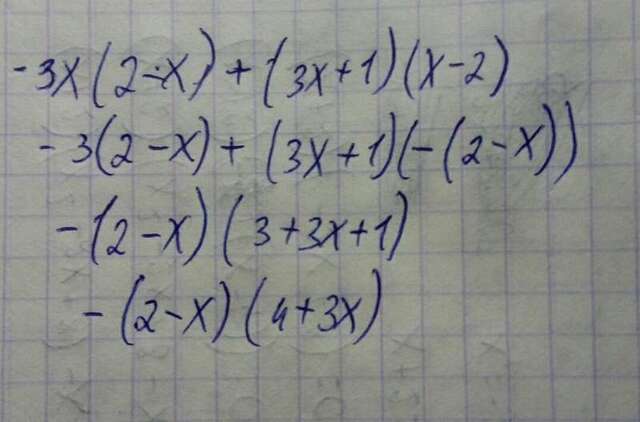 -3x(2-x)+(3x+1)(x-2)
-3(2-x)+(3x+1)(-(2-x))
-(2-x)(3+3x+1)
-(2-x)(4+3x)